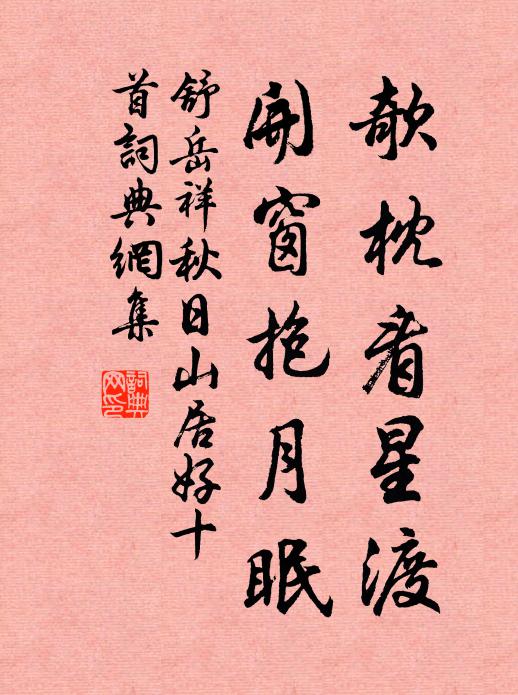 欹枕看星渡
開窗抱月眠
舒岳祥秋日山居好十
首詞典網集
詞典网印